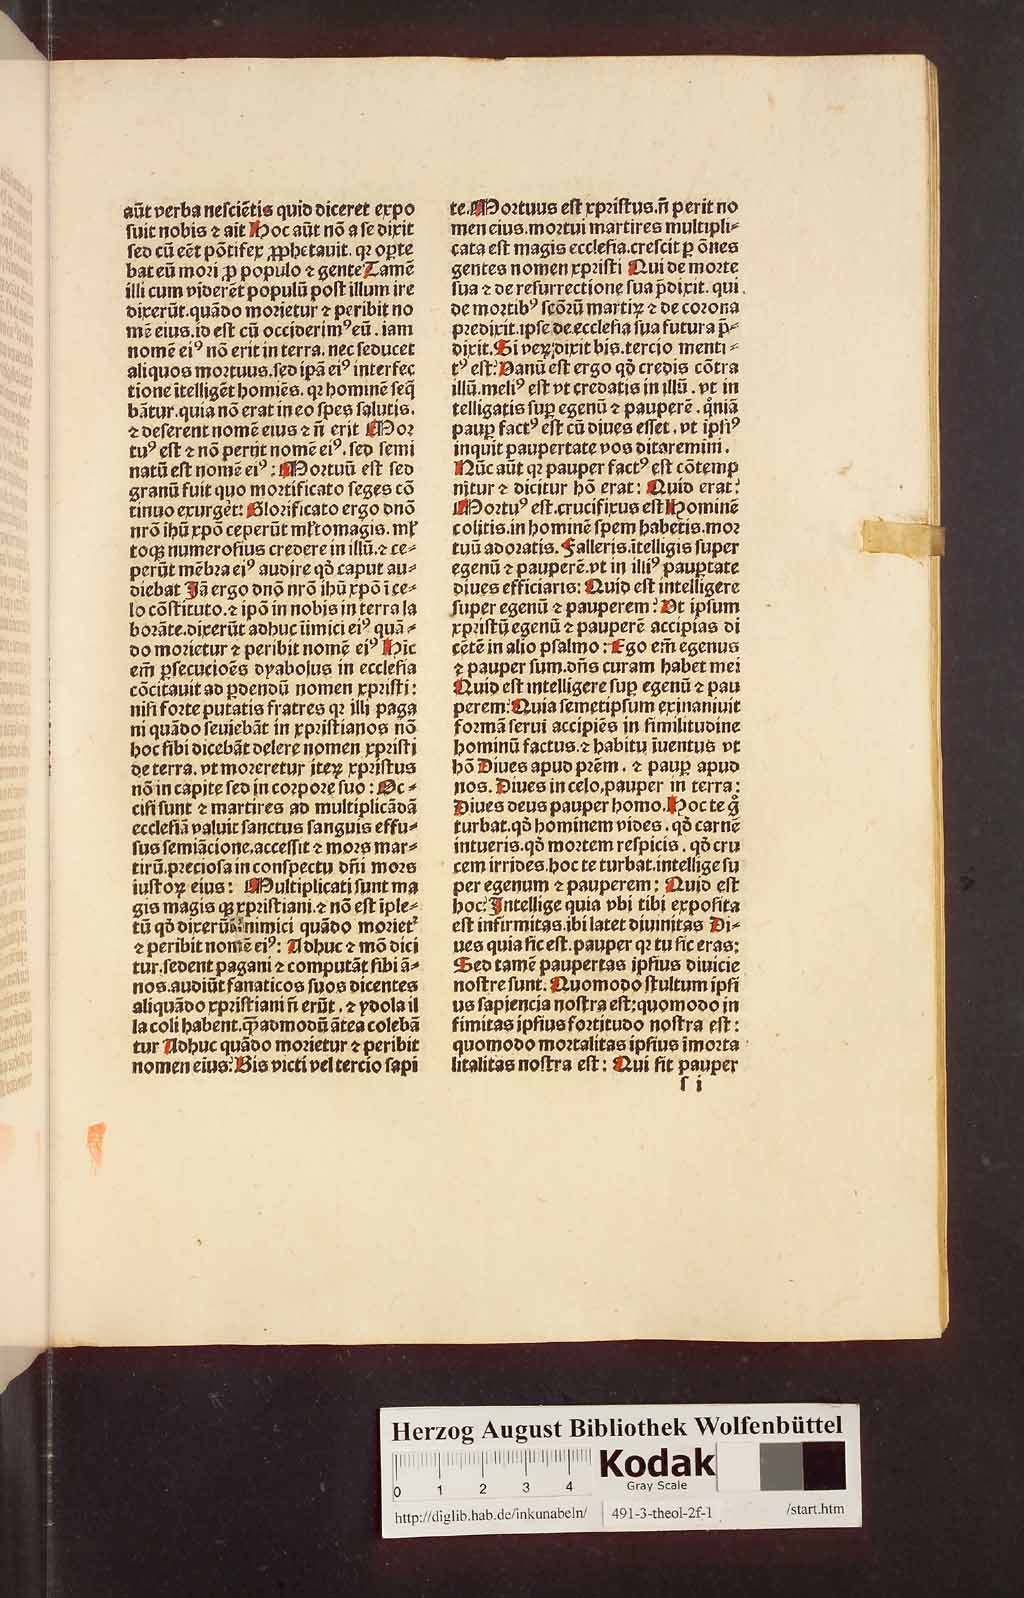 aūt verba nesciētis quid diceret expo
suit nobis ⁊ ait Hoc aūt nō a se dixit
sed cū eēt pōtifex ꝓphetauit. qꝛ oꝑte
bat eū mori ꝓ populo ⁊ gente Tamē
illi cum viderēt populū post illum ire
dixerūt. quādo morietur ⁊ peribit no
mē eius. id est cū occiderimꝰ eū. iam
nomē eiꝰ nō erit in terra. nec seducet
aliquos mortuus. sed ipā eiꝰ interfec
tione ītelligēt homiēs. qꝛ hominē seq̄
bātur. quia nō erat in eo spes salutis.
⁊ deserent nomē eius ⁊ n̄ erit Mor
tuꝰ est ⁊ nō perijt nomē eiꝰ. sed semi
natū est nomē eiꝰ: Mortuū est sed
granū fuit quo mortificato seges cō
tinuo exurgēt: Glorificato ergo dnō
nrō ihū xpō ceperūt ml̄tomagis. ml̄
toqꝫ numerosius credere in illū. ⁊ ce⸗
perūt mēbra eiꝰ audire qd̄ caput au⸗
diebat Jā ergo dnō nrō ihū xpō ī ce⸗
lo cōstituto. ⁊ ipō in nobis in terra la
borāte. dixerūt adhuc iimici eiꝰ quā⸗
do morietur ⁊ peribit nomē eiꝰ Hīc
em̄ ꝑsecucioēs dyabolus in ecclesia
cōcitauit ad ꝑdendū nomen xpristi:
nisi forte putatis fratres qꝛ illi paga
ni quādo seuiebāt in xpristianos nō
hoc sibi dicebāt delere nomen xpristi
de terra. vt moreretur iteꝝ xpristus
nō in capite sed in corpore suo: Oc⸗
cisi sunt ⁊ martires ad multiplicādā
ecclesiā valuit sanctus sanguis effu⸗
sus semiācione. accessit ⁊ mors mar⸗
tirū. preciosa in conspectu dn̄i mors
iustoꝝ eius: Multiplicati sunt ma
gis magis qꝫ xpristiani. ⁊ nō est īple⸗
tū qd̄ dixerūt inimici quādo morietᷣ
⁊ peribit nomē eiꝰ: Adhuc ⁊ mō dici
tur. sedent pagani ⁊ computāt sibi ā⸗
nos. audiūt fanaticos suos dicentes
aliquādo xpristiani n̄ erūt. ⁊ ydola il
la coli habent. qm̄admodū ātea colebā
tur Adhuc quādo morietur ⁊ peribit
nomen eius: Bis victi vel tercio sapi
te. Mortuus est xpristus. n̄ perit no
men eius. mortui martires multipli⸗
cata est magis ecclesia. crescit ꝑ ōnes
gentes nomen xpristi Qui de morte
sua ⁊ de resurrectione sua p̄dixit. qui
de mortibꝰ scōrū martiꝝ ⁊ de corona
predixit. ipse de ecclesia sua futura p̄⸗
dixit. Si veꝝ dixit bis. tercio menti⸗
tꝰ est: Vanū est ergo qd̄ credis cōtra
illū. meliꝰ est vt credatis in illū. vt in
telligatis suꝑ egenū ⁊ pauperē. qm̄niā
pauꝑ factꝰ est cū diues esset. vt ipsiꝰ
inquit paupertate vos ditaremini.
Nūc aūt qꝛ pauper factꝰ est cōtemp
nitur ⁊ dicitur hō erat: Quid erat:
Mortuꝰ est. crucifixus est Hominē
colitis. in hominē spem habetis. mor
tuū adoratis. Falleris. ītelligis super
egenū ⁊ pauperē. vt in illiꝰ pauꝑtate
diues efficiaris: Quid est intelligere
super egenū ⁊ pauperem: Vt ipsum
xpristū egenū ⁊ pauperē accipias di
cētē in alio psalmo: Ego em̄ egenus
⁊ pauper sum. dn̄s curam habet mei
Quid est intelligere suꝑ egenū ⁊ pau
perem: Quia semetipsum exinaniuit
formā serui accipiēs in similitudine
hominū factus. ⁊ habitu īuentus vt
hō Diues apud prēm. ⁊ pauꝑ apud
nos. Diues in celo, pauper in terra:
Diues deus pauper homo. Hoc te gͦ
turbat. qd̄ hominem vides. qd̄ carnē
intueris. qd̄ mortem respicis. qd̄ cru
cem irrides. hoc te turbat. intellige su
per egenum ⁊ pauperem: Quid est
hoc: Intellige quia vbi tibi exposita
est infirmitas. ibi latet diuinitas Di⸗
ues quia sic est. pauper qꝛ tu sic eras:
Sed tamē paupertas ipsius diuicie
nostre sunt. Quomodo stultum ipsi
us sapiencia nostra est: quomodo in
firmitas ipsius fortitudo nostra est:
quomodo mortalitas ipsius īmorta
litalitas nostra est: Qui sit pauper
s i
Herzog August Bibliothek Wolfenbüttel
0 1 2 3 4
Kodak
Gray Scale
http://diglib.hab.de/inkunabeln/ 491-3-theol-2f-1 /start.htm